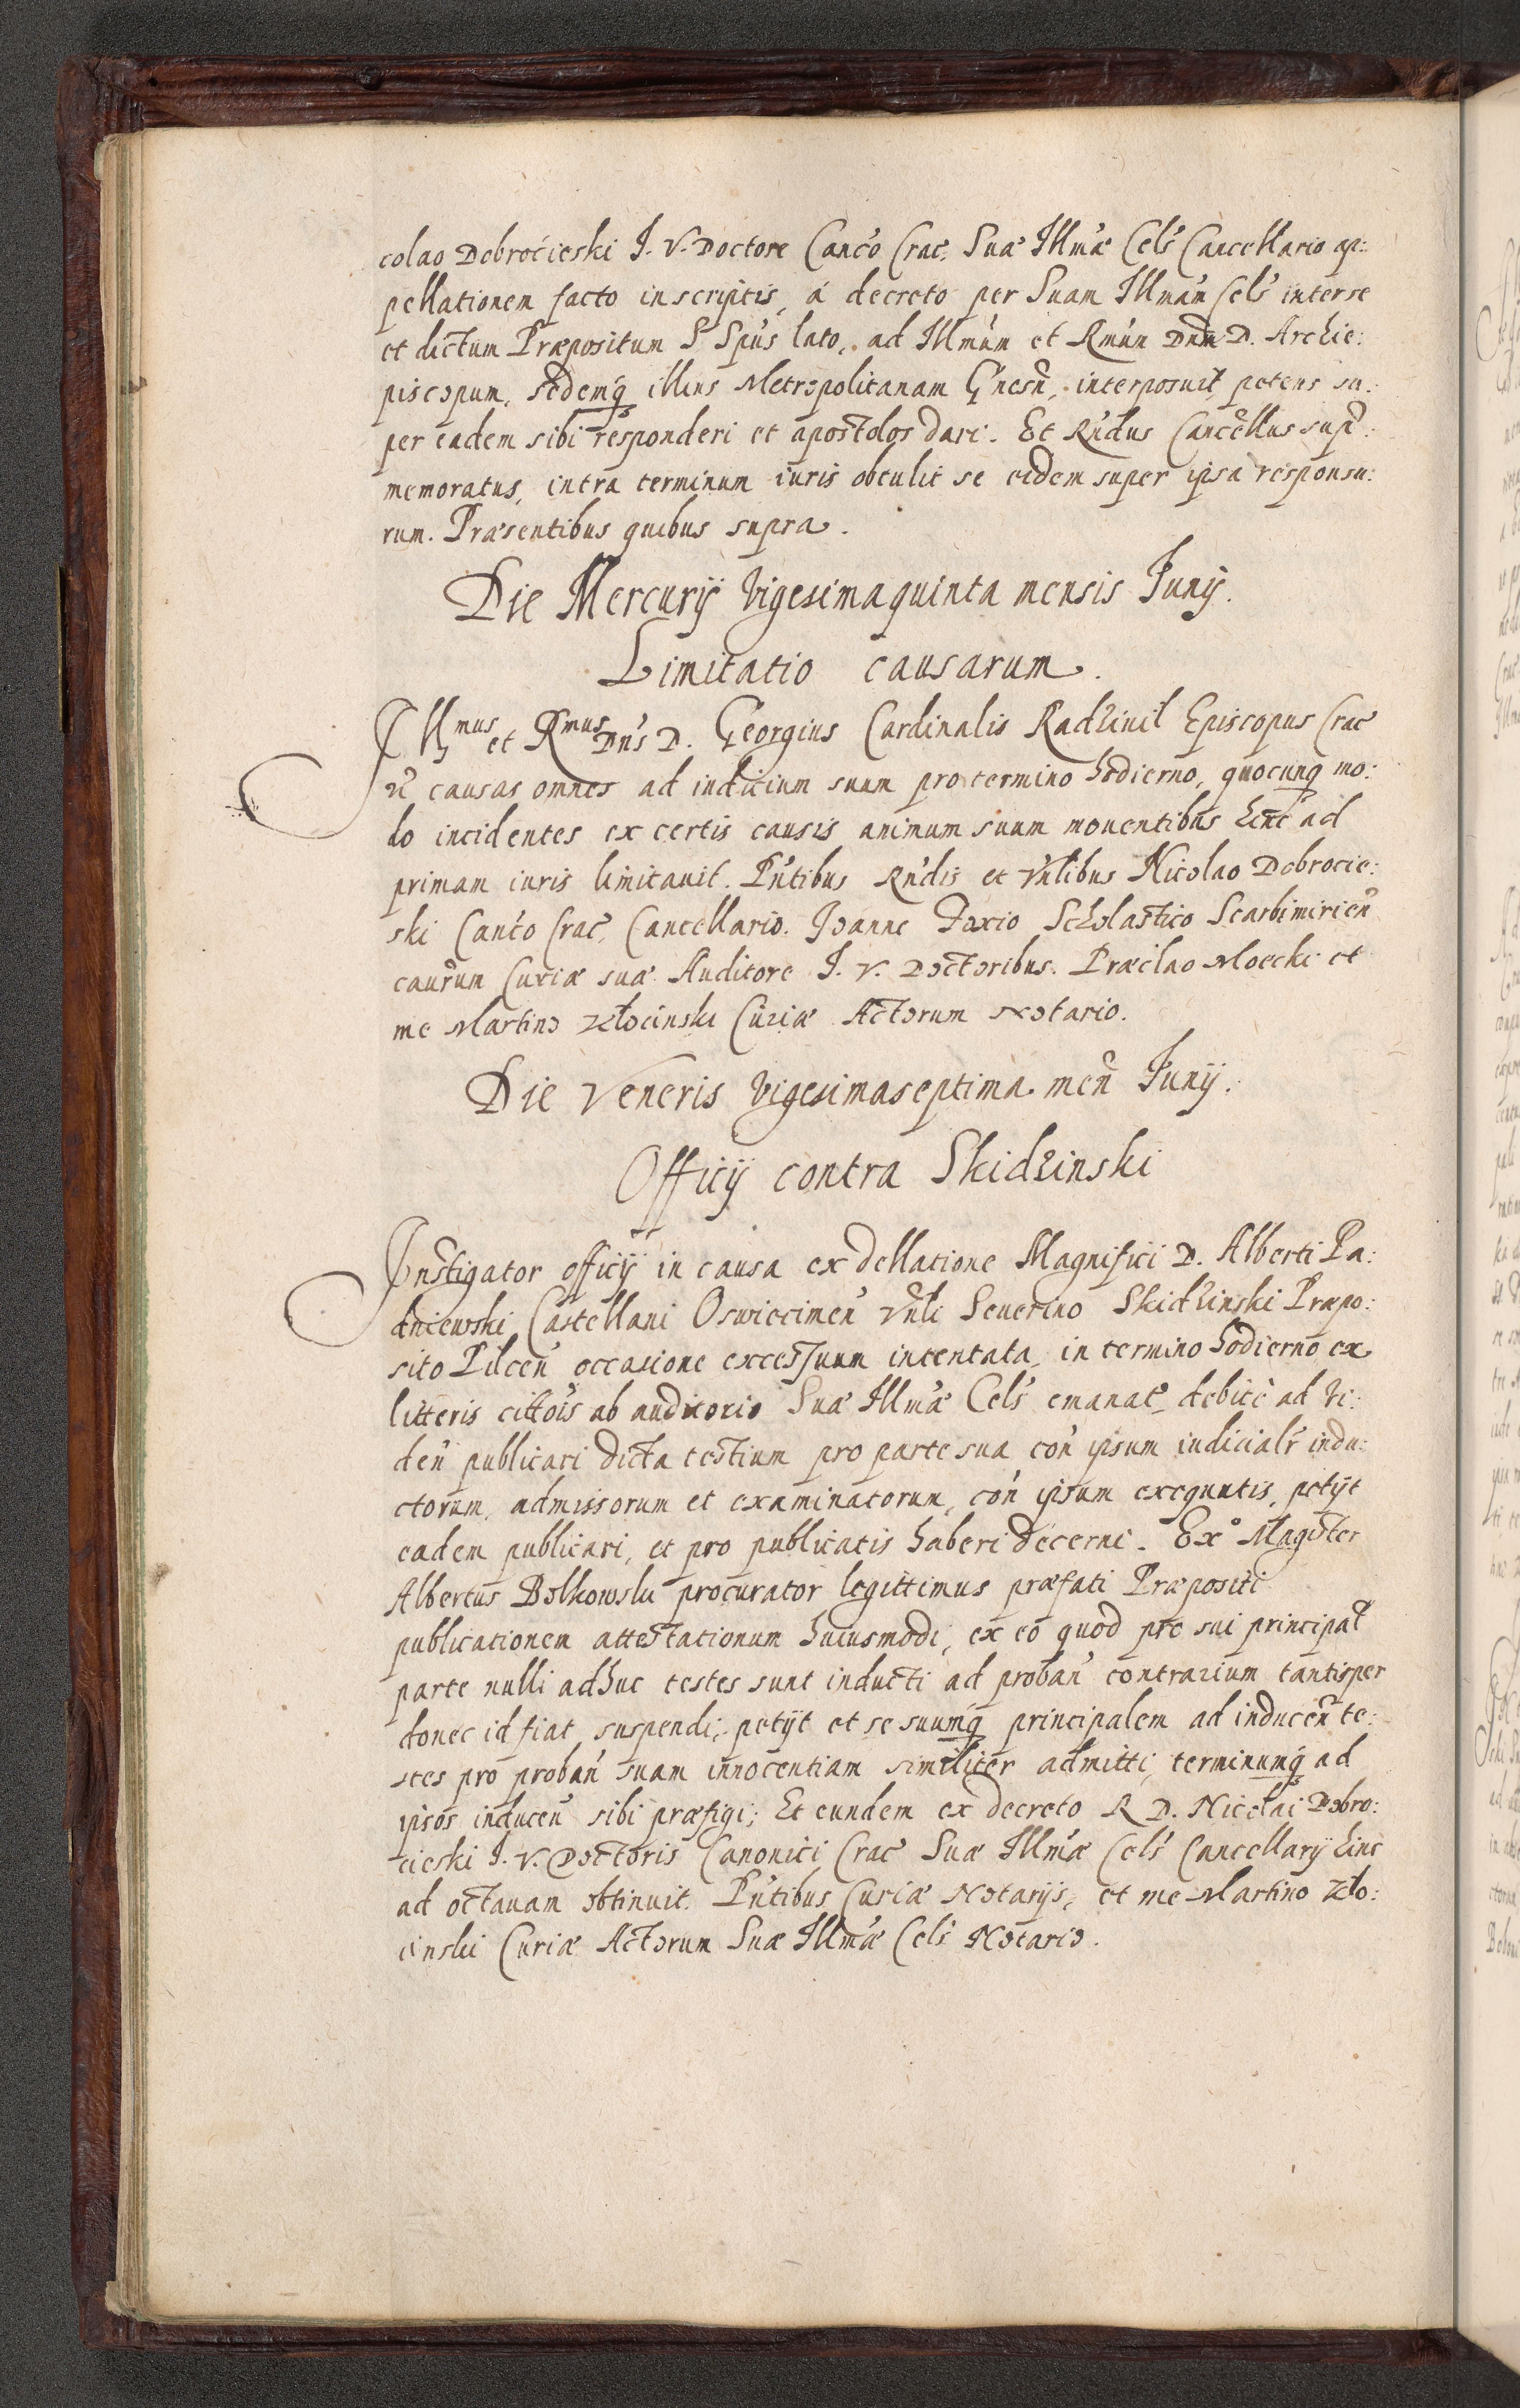 colao Dobrocieski J. V. Doctore Canco Crac. Suæ Illmæ Cels Cancellario ap:
pellationem facto inscriptis, á decreto per Suam Illmam Cels inter se
et dictum Præpositum S Spus lato, ad Illmum et Rmum Dnum D. Archie:
piscopum, sedemq illius Metropolitanam Gnesn, interposuit, petens su:
per eadem sibi responderi et apostolos dari. Et Rndus Cancellus sup:
memoratus, intra terminum iuris obtulit se eidem super ipsa responsu:
rum. Præsentibus quibus supra.
Die Mercurij vigesimaquinta mensis Junij.
Limitatio causarum.
Illmus et Rmus Dns D. Georgius Cardinalis Radzivil Episcopus Crac
causas omnes ad iudicium suum pro termino hodierno, quocunq mo:
do incidentes ex certis causis animum suum mouentibus hinc ad
primam iuris limitauit. Pntibus Rndis et Vnlibus Nicolao Dobrocie:
ski Canco Crac, Cancellario. Joanne Foxio Scholastico Scarbimirien
caurum Curiæ suæ Auditore J. V. Doctoribus. Præclao Moecki et
me Martino Złocinski Curiæ Actorum Notario.
Die Veneris vigesimaseptima men Junij.
Officij contra Skidzinski
Instigator officij in causa ex dellatione Magnifici D. Alberti Pa:
dniewski Castellani Oswiecimen Vnli Seuerino Skidzinski Præpo:
sito Pilcen occasione excessuum intentata, in termino hodierno ex
litteris cittois ab auditorio Suæ Illmæ Cels emanat, debite ad vi:
den publicari dicta testium pro parte sua con ipsum iudicialr indu:
ctorum, admissorum et examinatorum, con ipsum exequutis, petijt
eadem publicari, et pro publicatis haberi decerni. Ex° Magister
Albertus Bolkowski procurator legittimus præfati Præpositi
publicationem attestationum huiusmodi, ex eo quod pro sui principal
parte nulli adhuc testes sunt inducti ad proban contrarium tantisper
donec id fiat suspendi, petijt et se suumq principalem ad inducen te:
stes pro proban suam innocentiam similiter admitti, terminumq ad
ipsos inducen sibi præfigi; Et eundem ex decreto R D. Nicolai Dobro:
cieski J. V. Doctoris Canonici Crac Suæ Illmæ Cels Cancellarij hinc
ad octauam obtinuit. Pntibus Curiæ Notarijs, et me Martino Zło:
cinski Curiæ Actorum Suæ Illmæ Cels Notario.